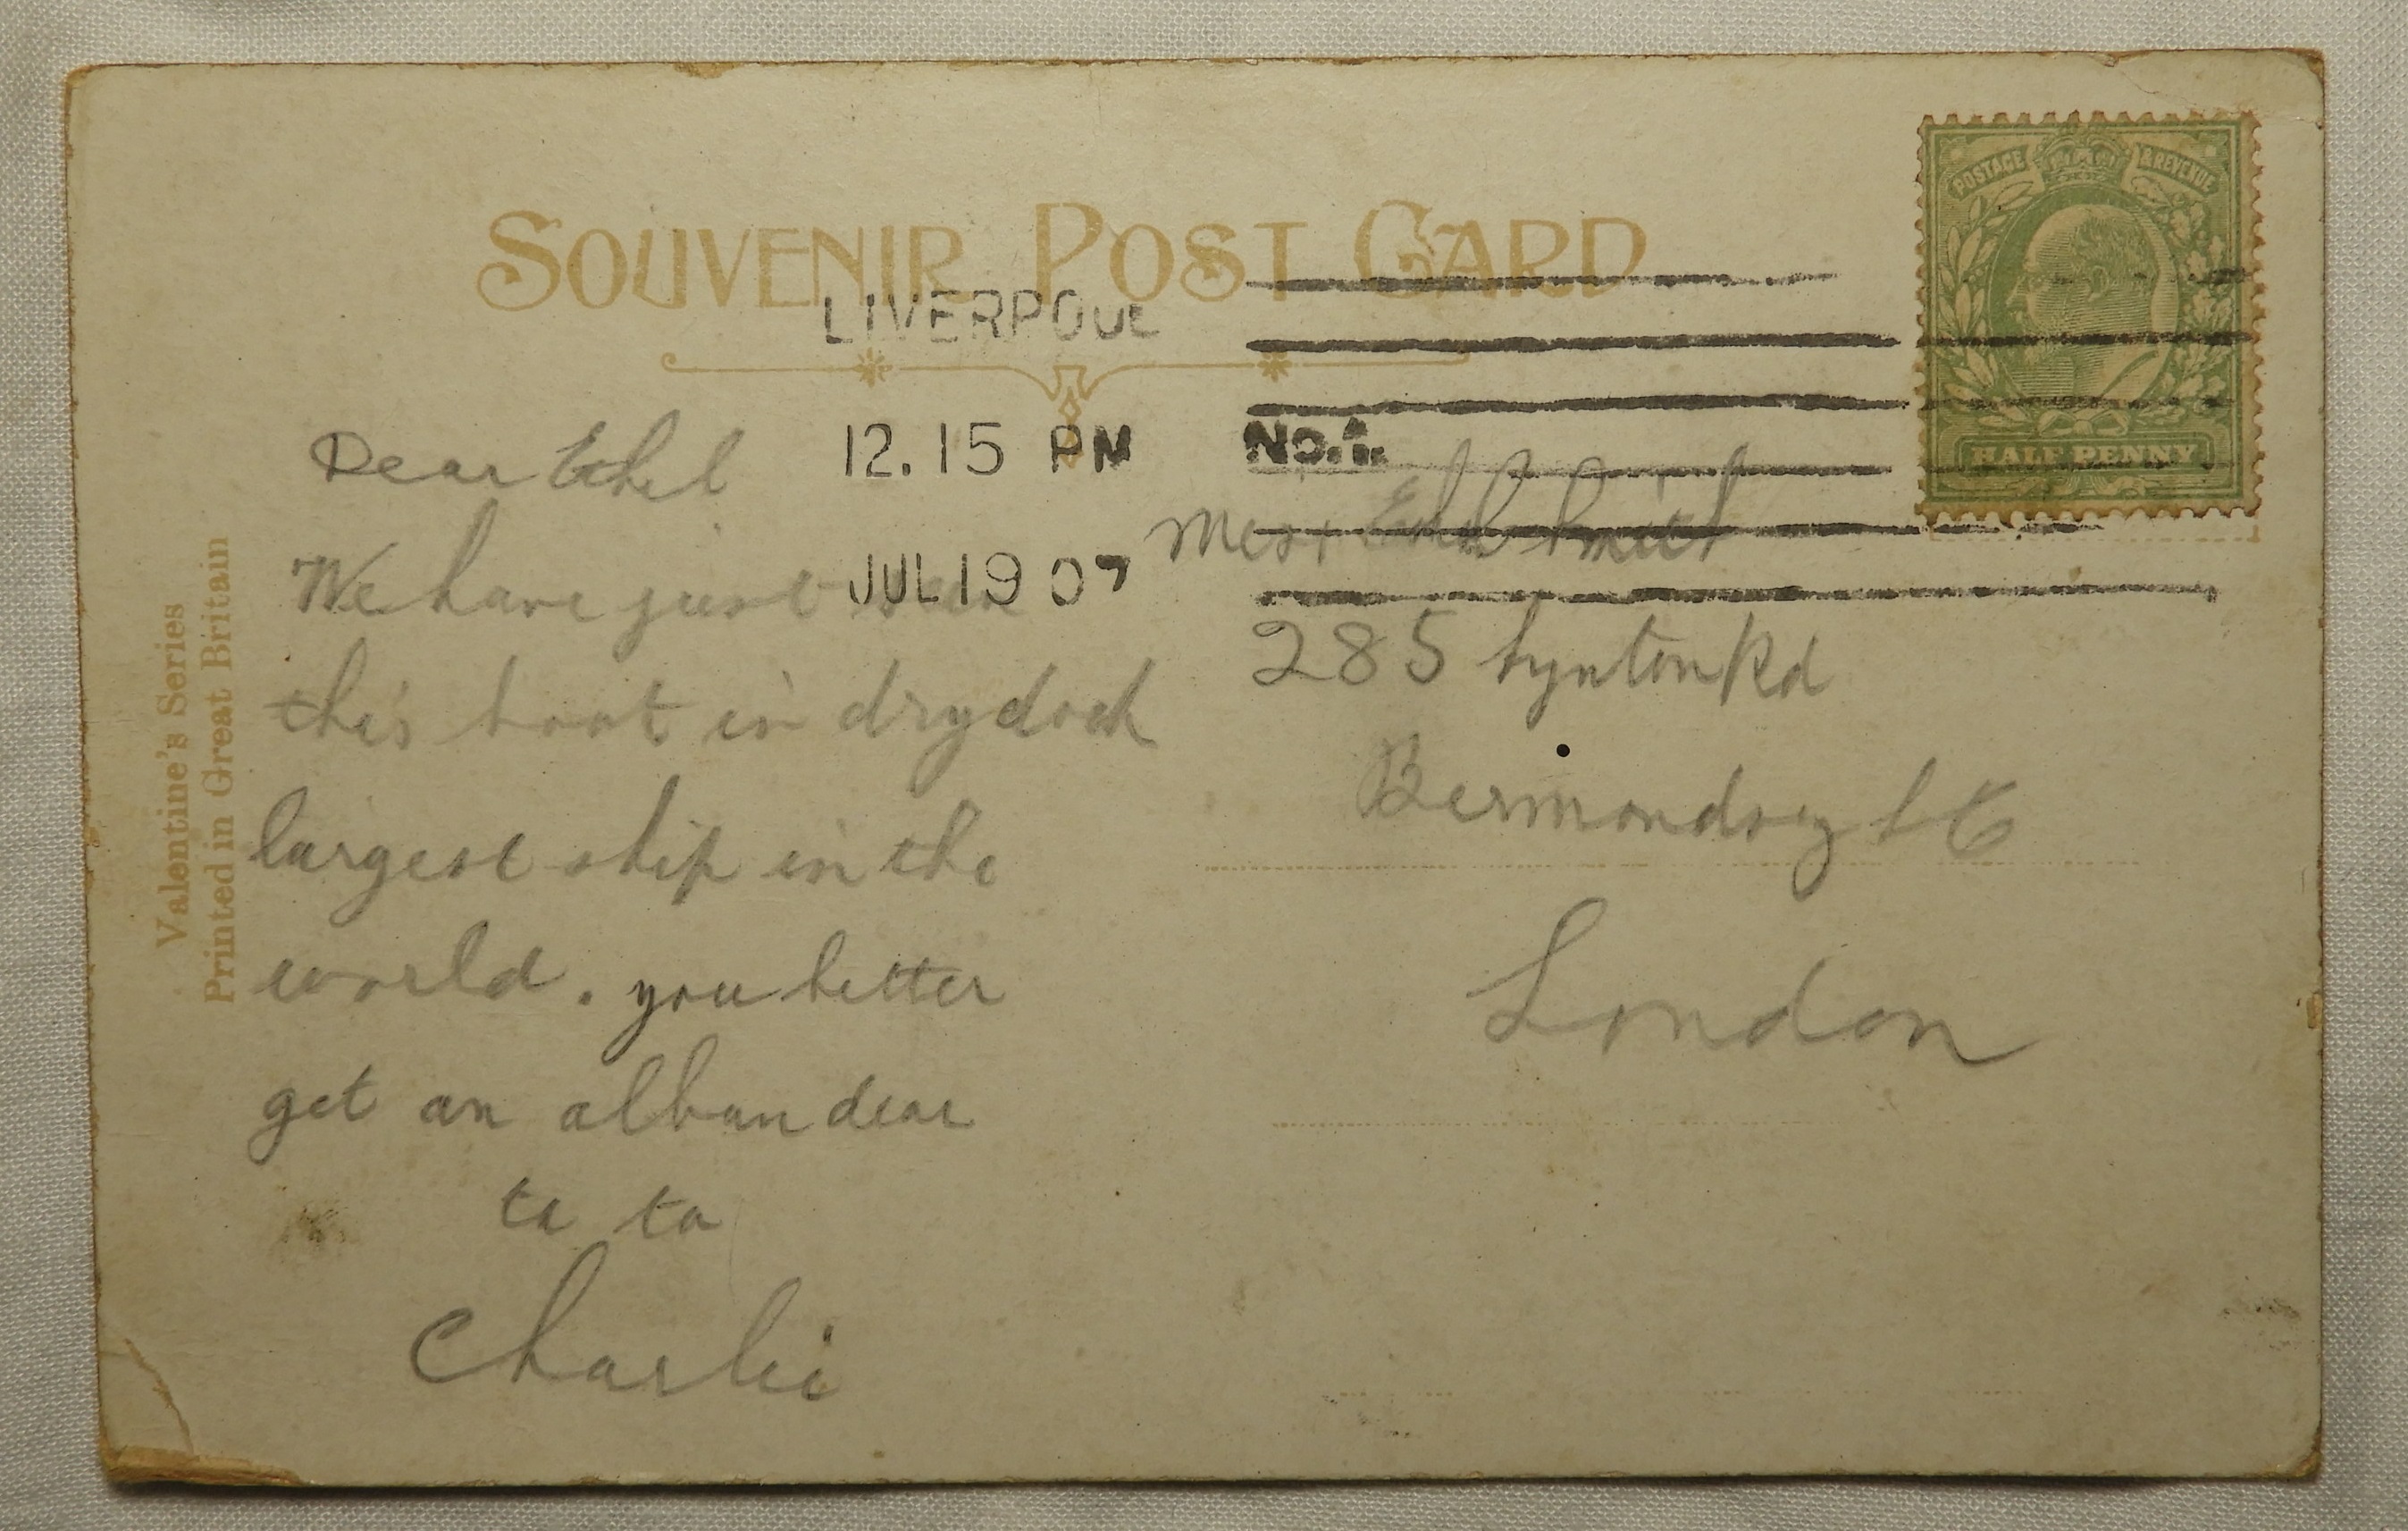 SOUVENIR POST CARD
POSTAGE & REVENUE
HALF PENNY
LIVERPOOL
12.15 PM
JUL 19 07
No.1.
Valentine's Series
Printed in Great Britain
Dear Ethel
We have just seen
this boat in dry dock
largest ship in the
world. you better
get an album dear
ta ta
Charlie
Miss Ethel Smith
285 Lynton Rd
Bermondsey SE
London